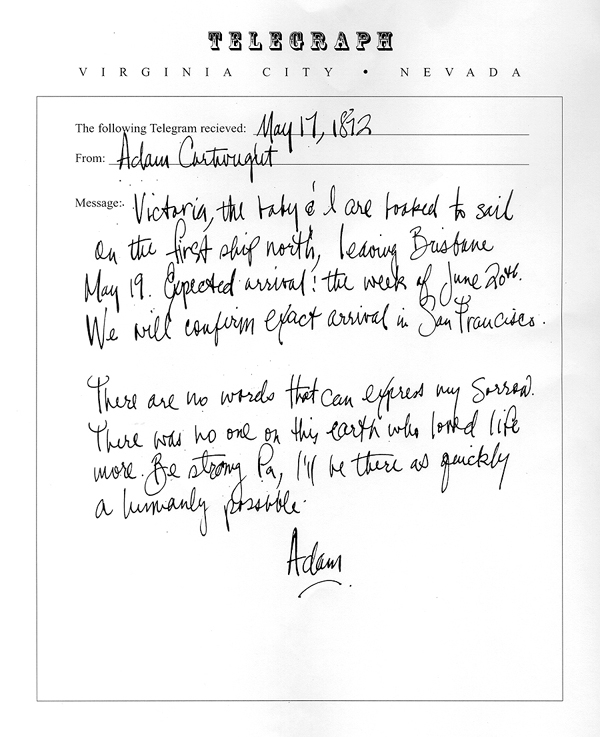 TELEGRAPH
VIRGINIA CITY • NEVADA
The following Telegram recieved: May 17, 1872
From: Adam Cartwright
Message: Victoria, the baby & I are booked to sail
on the first ship north, leaving Brisbane
May 19. Expected arrival: the week of June 20th.
We will confirm exact arrival in San Francisco.
There are no words that can express my sorrow.
There was no one on this earth who loved life
more. Be strong Pa, I'll be there as quickly
a humanly possible.
Adam